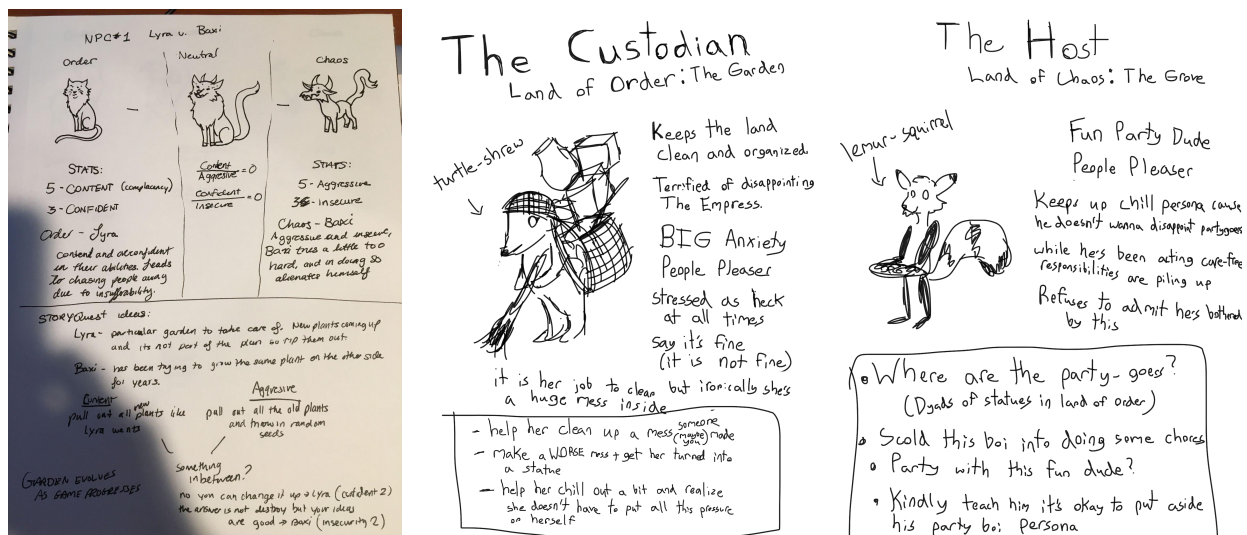 NPC#1 Lyra v. Baxi
Order
Neutral
Chaos
STATS:
5 - CONTENT (complacency)
3 - CONFIDENT
Order - Lyra
content and overconfident
in their abilities. Leads
to chasing people away
due to insufferability.
Content
Aggressive = 0
Confident
Insecure = 0
STATS:
5 - Aggressive
3 - Insecure
Chaos - Baxi
Aggressive and insecure,
Baxi tries a little too
hard, and in doing so
alienates hemself
STORYQuest ideas:
Lyra - particular garden to take care of. New plants coming up
and its not part of the plan so rip them out.
Baxi - has been trying to grow the same plant on the other side
for years.
Content
pull out all new plants like
Lyra wants
Aggressive
pull out all the old plants
and throw in random
seeds
Something
inbetween?
GARDEN EVOLVES
AS GAME PROGRESSES
no you can change it up → Lyra (confident 2)
the answer is not destroy but your ideas
are good → Baxi (insecurity 2)
The Custodian
Land of Order: The Garden
turtle-shrew
Keeps the land
clean and organized
Terrified of disappointing
The Empress.
BIG Anxiety
People Pleaser
stressed as heck
at all times
say it's fine
(it is not fine)
it is her job to clean but ironically she's
a huge mess inside
- help her clean up a mess someone (maybe you) made
- make a WORSE mess + get her turned into
a statue
- help her chill out a bit and realize
she doesn't have to put all this pressure
on herself
The Host
Land of Chaos: The Grove
lemur-squirrel
Fun Party Dude
People Pleaser
Keeps up chill persona cause
he doesn't wanna disappoint partygoers
while he's been acting care-free
responsibilities are piling up
Refuses to admit he's bothered
by this
• Where are the party-goers?
(Dyads of statues in land of order)
• Scold this boi into doing some chores
• Party with this fun dude?
• Kindly teach him it's okay to put aside
his party boi persona